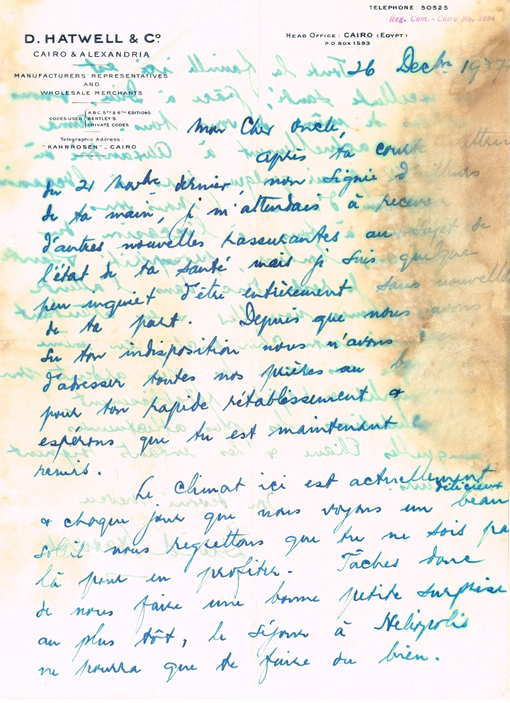 TELEPHONE: 50525
Reg. Com. - Cairo No. 2494
D. HATWELL & Co
CAIRO & ALEXANDRIA
HEAD OFFICE: CAIRO (EGYPT)
P.O.BOX 1593
MANUFACTURERS' REPRESENTATIVES
AND
WHOLESALE MERCHANTS
CODES USED
A B C 5TH & 6TH EDITIONS
BENTLEY'S
PRIVATE CODES
Telegraphic Address:
"KAHNROSEN", CAIRO
26 Decbr 1937
Mon Cher Oncle,
Après ta courte
du 21 Novbre dernier, non signée d
de ta main, je m'attendais à recevoir
d'autres nouvelles rassurantes au sujet de
l'état de ta santé mais je suis quelque
peu inquiet d'être entièrement sans nouvelles
de ta part. Depuis que nous avons
su ton indisposition nous n'avons
d'adresser toutes nos prières au
pour ton rapide rétablissement &
espérons que tu est maintenant
remis.
Le climat ici est actuellement délicieux
& chaque jour que nous voyons un beau
soleil nous regrettons que tu ne sois pa
là pour en profiter. Tâches donc
de nous faire une bonne petite surprise
au plus tôt, le séjour à Héliopolis
ne pourra que te faire du bien.